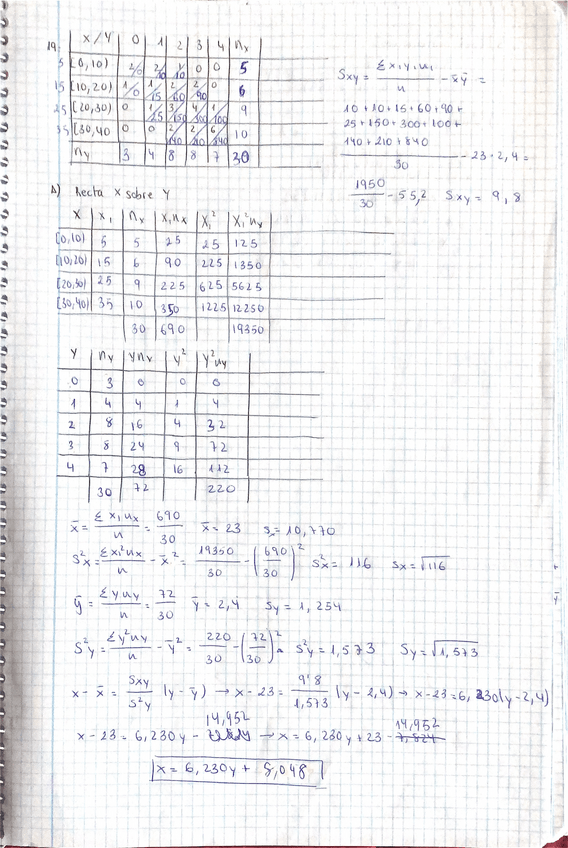 19. X/Y 0 1 2 3 4 nx
5 [0,10) 2/0 2/10 1/10 0 0 5
15 [10,20) 1/0 1/15 2/60 2/90 0 6
25 [20,30) 0 1/25 3/150 4/300 1/100 9
35 [30,40 0 0 2/140 2/210 6/840 10
ny 3 4 8 8 7 30
Sxy = Σxiyini/n - x̄ȳ =
10+10+15+60+90+
25+150+300+100+
140+210+840
/30 - 23·2,4 =
1950/30 - 55,2 Sxy = 9,8
A) Recta X sobre Y
X Xi nx Xinx Xi² Xi²nx
[0,10) 5 5 25 25 125
[10,20) 15 6 90 225 1350
[20,30) 25 9 225 625 5625
[30,40) 35 10 350 1225 12250
30 690 19350
Y ny Yny Y² Y²ny
0 3 0 0 0
1 4 4 1 4
2 8 16 4 32
3 8 24 9 72
4 7 28 16 112
30 72 220
x̄ = Σxinx/n = 690/30 x̄ = 23 sx = 10,770
S²x = Σxi²nx/n - x̄² = 19350/30 - (690/30)² S²x = 116 Sx = √116
ȳ = Σyny/n = 72/30 ȳ = 2,4 Sy = 1,254
S²y = Σy²ny/n - ȳ² = 220/30 - (72/30)² = S²y = 1,573 Sy = √1,573
x - x̄ = Sxy/S²y (y - ȳ) → x - 23 = 9'8/1,573 (y - 2,4) → x - 23 = 6,230(y - 2,4)
x - 23 = 6,230y - 14,952 → x = 6,230y + 23 - 14,952
x = 6,230y + 8,048